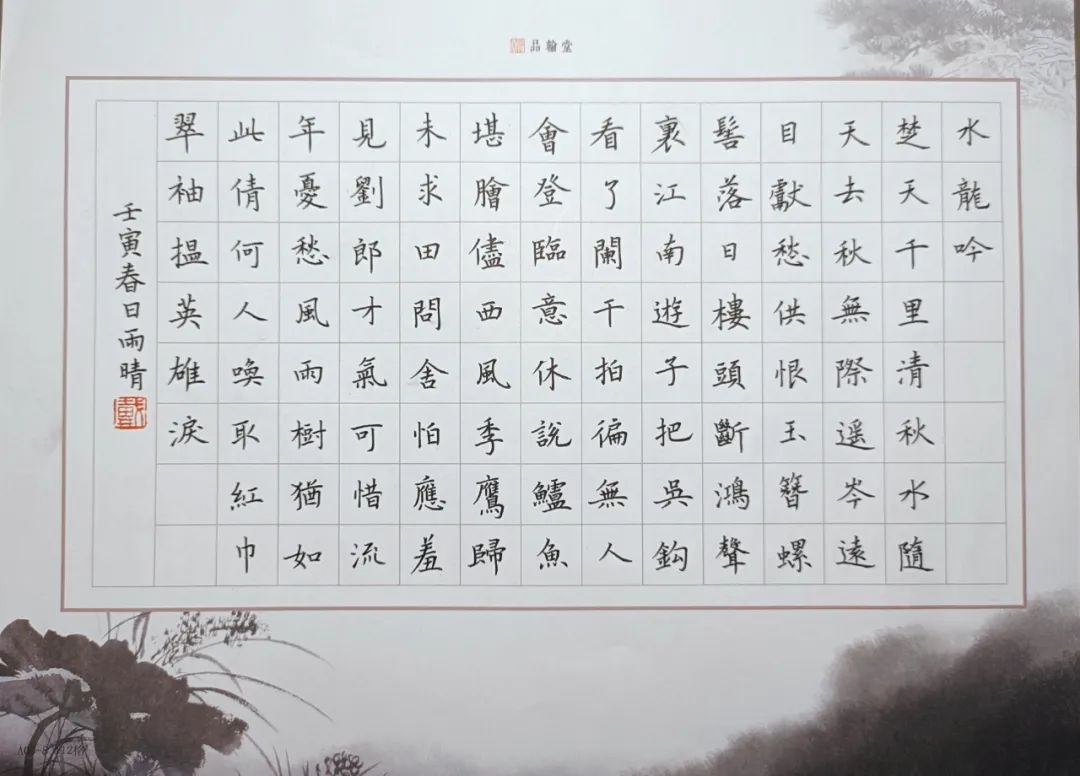 品翰堂
水龍吟
楚天千里清秋水隨
天去秋無際遥岑遠
目獻愁供恨玉簪螺
髻落日樓頭斷鴻聲
裏江南遊子把吳鈎
看了闌干拍徧無人
會登臨意休說鱸魚
堪膾儘西風季鷹歸
未求田問舍怕應羞
見劉郎才氣可惜流
年憂愁風雨樹猶如
此倩何人喚取紅巾
翠袖揾英雄淚
壬寅春日雨晴